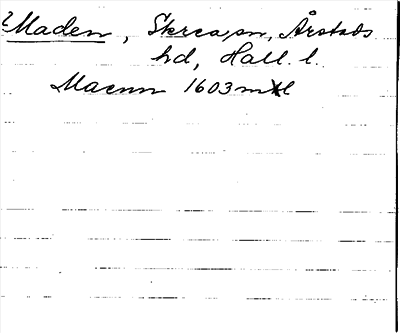 ?Maden, Skrea sn, Årstads
hd, Hall. l.
Maenn 1603 mtl